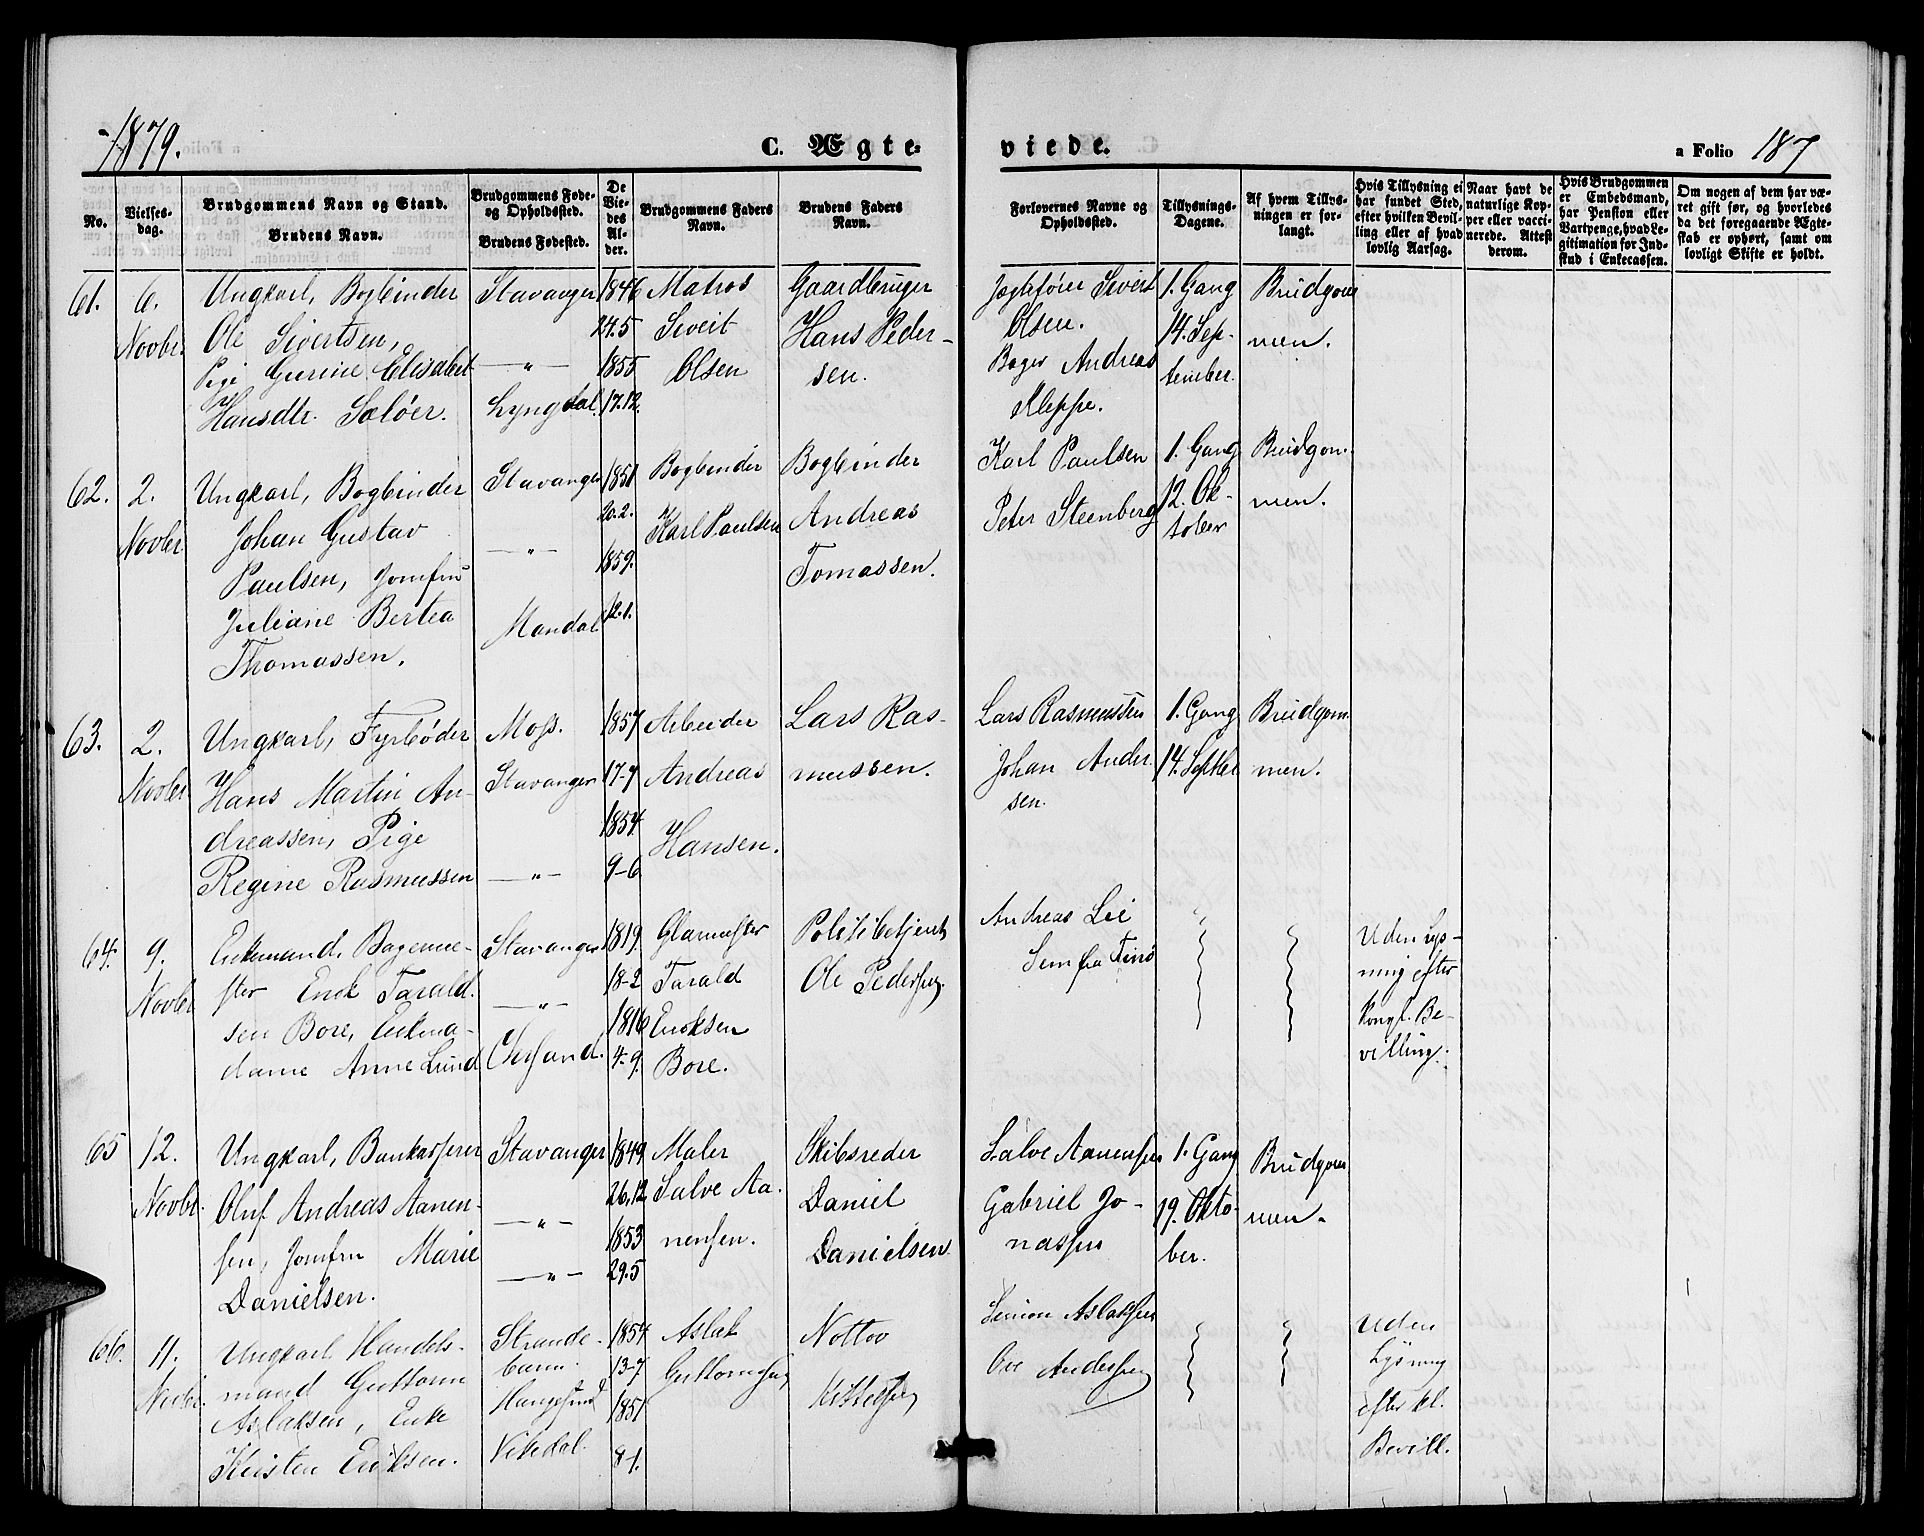 1879.
C. Ægte-
viede.
a Folio 187
No.
Vielses-
dag.
Brudgommens Navn og Stand.
Brudens Navn.
Brudgommens Føde-
og Opholdssted.
Brudens Fødested.
De
Vie-
des
Al-
der.
Brudgommens Faders
Navn.
Brudens Faders
Navn.
Forlovernes Navne og
Opholdssted.
Tillysnings-
Dagene.
Af hvem Tillys-
ningen er for-
langt.
Hvis Tillysning ei
har fundet Sted,
efter hvilken Bevil-
ling eller af hvad
lovlig Aarsag.
Naar havt de
naturlige Kop-
per eller vacci-
nerede. Attest
derom.
Hvis Brudgommen
er Embedsmand,
har Pension eller
Vartpenge, hvad Le-
gitimation for Ind-
skud i Enkecassen.
Om nogen af dem har væ-
ret gift før, og hvorledes
da det foregaaende Ægte-
skab er ophørt, samt om
lovligt Skifte er holdt.
61.
6.
Novbr.
Ungkarl, Bogbinder
Ole Sivertsen,
Pige Gurine Elisabet
Hansdtr. Seløer.
Stavanger
— " —
Lyngdal.
1846
24.5
1855
17.12.
Matros
Siveit
Olsen
Gaardbruger
Hans Peder-
sen.
Jægtefører Sivert
Olsen.
Bager Andreas
Kleppe.
1. Gang
14. Sep-
tember.
Brudgom
men.
62.
2.
Novbr
Ungkarl, Bogbinder
Johan Gustav
Paulsen, Jomfru
Juliane Bertea
Thomassen.
Stavanger
— " —
Mandal
1851
20.2.
1859.
12.1.
Bogbinder
Karl Paulsen
Bogbinder
Andreas
Tomassen.
Karl Paulsen
Peter Steenberg
1. Gang
12. Ok-
tober
Brudgom-
men.
63.
2.
Novbr
Ungkarl, Fyrbøder
Hans Martin An-
dreassen, Pige
Regine Rasmussen
Moss.
Stavanger
— " —
1857
17-7
1854
9-6
Arbeider
Andreas
Hansen.
Lars Ras-
mussen.
Lars Rasmussen
Johan Ander
sen.
1. Gang
14. Septbr
Brudgom-
men.
64.
9.
Novbr
Enkemand, Bageme-
ster Enok Tarald.
sen Bore, Enkma-
dame Anne Lund
Stavanger
— " —
1819.
18-2
1816
4.9.
Glarmester
Tarald
Enoksen
Bore.
Politibetjent
Ole Pedersen.
Andreas Lie
1. Uden Lys-
ning efter
kongl. Be-
villing.
65
12.
Novbr.
Ungkarl, Bankasserer
Oluf Andreas Aanen-
sen, Jomfru Marie
Danielsen.
Stavanger
— " —
— " —
1849
26.12
1853
29.5
Maler
Salve Aa-
nensen.
Skibsreder
Daniel
Danielsen
Salve Aanensen
Gabriel Jo-
nassen
1. Gang
19. Okto-
ber.
Brudgom
men.
66.
11.
Novbr.
Ungkarl Handels-
mand Guttorm
Aslaksen, Enke
Kristen Eriksen.
Strande-
barm.
Haugesund
Vikedal.
1854
13-7
1851
8-1.
Aslak
Guttormsen
Nottov
Kittelsen
Simon Aslaksen
Ole Andersen
Uden
Lysning
efter kl.
Bevill.